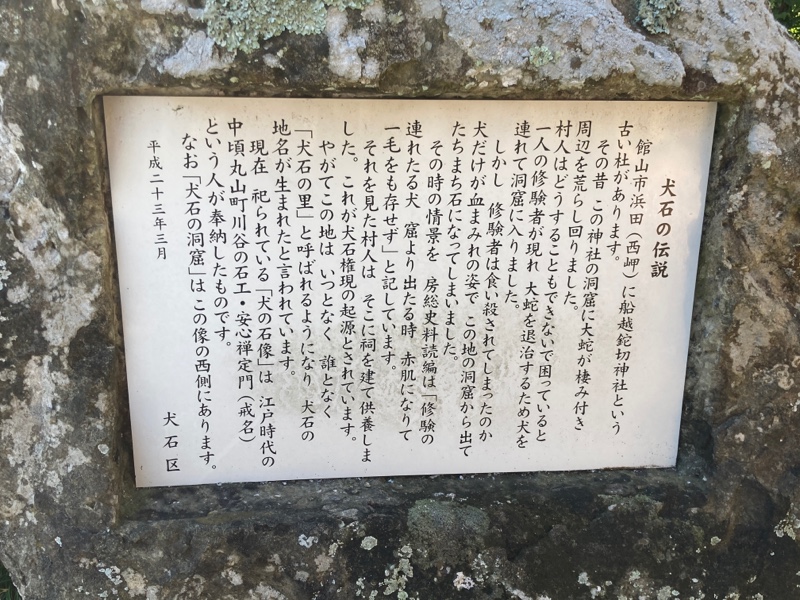 犬石の伝説
館山市浜田（西岬）に船越鉈切神社という
古い社があります。
その昔 この神社の洞窟に大蛇が棲み付き
周辺を荒らし回りました。
村人はどうすることもできないで困っていると
一人の修験者が現れ 大蛇を退治するため犬を
連れて洞窟に入りました。
しかし 修験者は食い殺されてしまったのか
犬だけが血まみれの姿で この地の洞窟から出て
たちまち石になってしまいました。
その時の情景を 房総史料読編は「修験の
連れたる犬 窟より出たる時 赤肌になりて
一毛をも存せず」と記しています。
それを見た村人は そこに祠を建て供養しま
した。これが犬石権現の起源とされています。
やがてこの地は いつとなく 誰となく
「犬石の里」と呼ばれるようになり 犬石の
地名が生まれたと言われています。
現在 祀られている「犬の石像」は 江戸時代の
中頃丸山町川谷の石工・安心禅定門（戒名）
という人が奉納したものです。
なお「犬石の洞窟」はこの像の西側にあります。
平成二十三年三月
犬石区